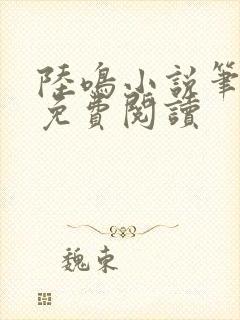 陸鳴小説筆
免費閱讀
魏東